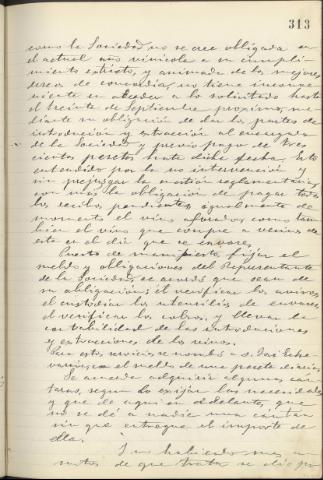 313
como la Sociedad no se cree obligada en
el actual año vinícola a su cumpli-
miento estricto, y animada de los mejores
deseos de conciliar, no tiene inconve-
niente en acceder a lo solicitado hasta
el treinta de Septiembre proximo, me-
diante su obligación de dar los partes de
introducción y extracción al encargado
de la Sociedad y previo pago de tres
cientas pesetas hasta dicha fecha. Esto
entendido por la no intervención y
sin prejuzgar la cuestión reglamentaria,
con más la obligación de pagar todos
los recibos pendientes igualmente de
momento el vino aforado como tam-
bien el vino que compre a vecinos de
esta en el dia que se envase.
Puesto de manifiesto fijar el
sueldo y obligaciones del Representante
de la Sociedad, se acordó que sean de
su obligación: el verificar los aforos,
el custodiar los utensilios de envases,
el verificar los cobros, y llevar la
contabilidad de las introducciones
y extracciones de los vinos.
Para este servicio se nombró a D. José
el sueldo de una peseta diaria.
Se acuerda adquirir algunas cán-
taras, segun lo exijan las necesidades
y que de aqui en adelante, que
no se dé a nadie una cántara
sin que entregue el importe de
ella.
Y no habiendo mas a-
suntos de que tratar se dió por